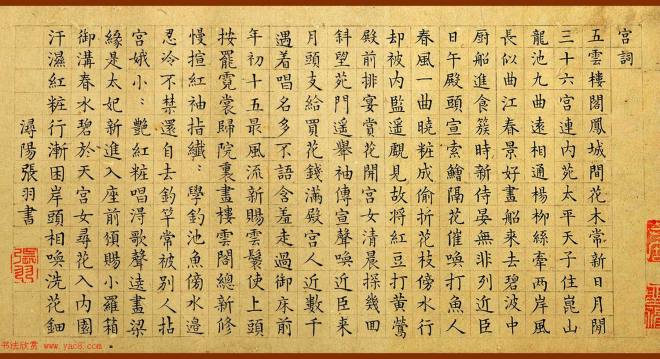 宮詞
五雲樓閣鳳城間花木常新日月閒
三十六宮連内苑太平天子住崑山
龍池九曲遠相通楊柳絲牽兩岸風
長似曲江春景好畫船来去碧波中
厨船進食簇時新侍晏無非列近臣
日午殿頭宣索鱠隔花催喚打魚人
春風一曲曉粧成偷折花枝傍水行
却被内監遥覰見故將紅豆打黄鶯
殿前排宴賞花開宮女清晨探幾囬
斜望苑門遥舉袖傳宣聲喚近臣来
月頭支給買花錢滿殿宮人近數千
遇着唱名多不語含羞走過御床前
年初十五最風流新賜雲鬟使上頭
按罷霓裳歸院裏畫樓雲閣總新修
慢揎紅袖指纖〻學釣池魚傍水邉
忍冷不禁還自去釣竿常被别人拈
宮娥小〻艷紅粧唱得歌聲遶畫梁
緣是太妃新進入座前頒賜小羅箱
御溝春水碧於天宮女尋花入内園
汗濕紅粧行漸困岸頭相喚洗花鈿
潯陽張羽書
书法欣赏 www.yac8.com